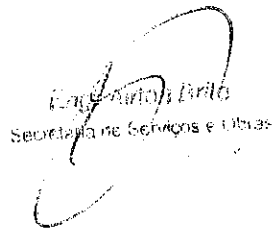 Engº Airton Brito
Secretaria de Serviços e Obras